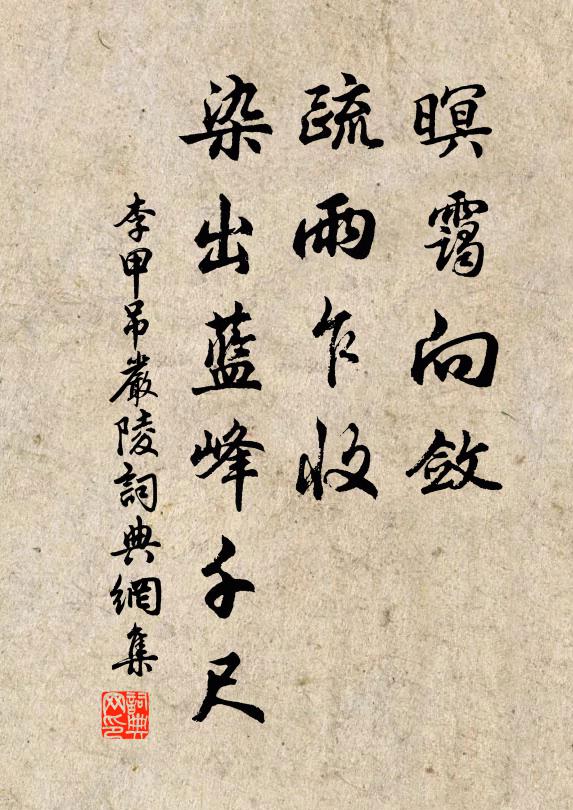 暝靄向斂
疏雨乍收
染出藍峰千尺
李甲吊嚴陵詞典網集
詞典網印